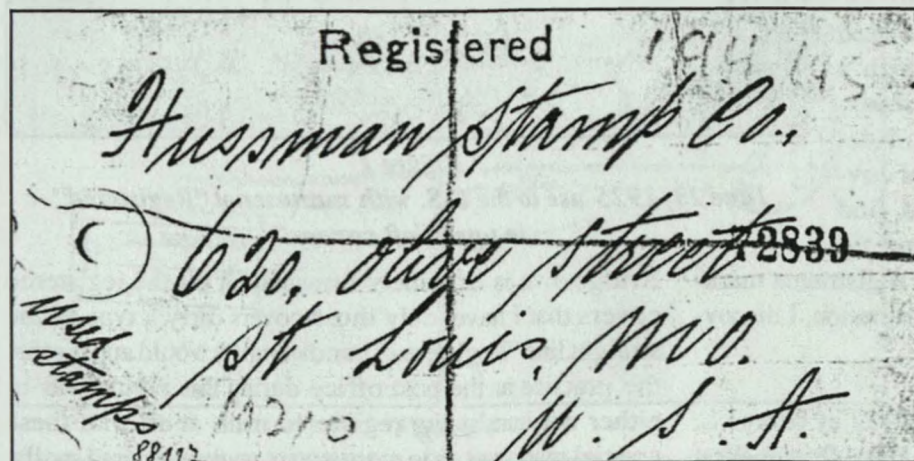 Registered
Hussman Stamp Co.,
620, Olive Street
72839
St. Louis, Mo.
U. S. A.
used
stamps
88117